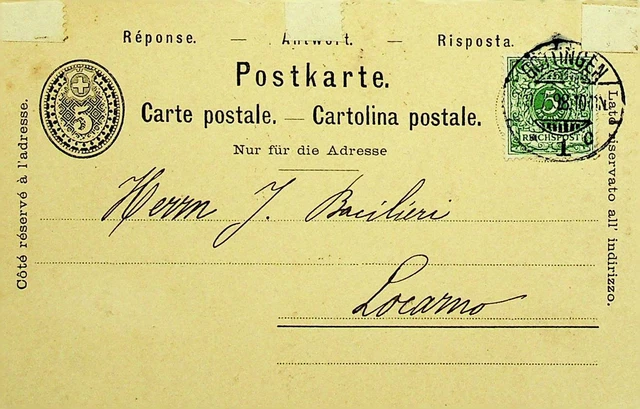 Réponse. — Antwort. — Risposta.
Postkarte.
Carte postale. — Cartolina postale.
Nur für die Adresse
Côté réservé à l'adresse.
Lato riservato all' indirizzo.
5
GÖTTINGEN
98.10-11N.
1 c
5
REICHSPOST
Herrn J. Bacilieri
Locarno